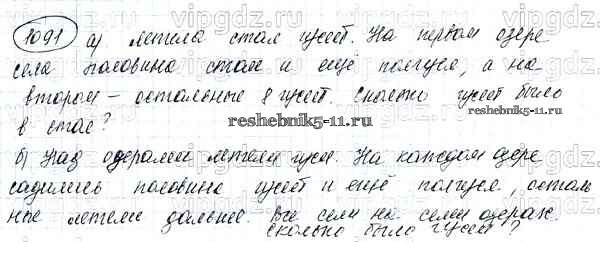 1091 а) Летела стая гусей. На первом озере
села половина стаи и ещё полгуся, а на
втором – остальные 8 гусей. Сколько гусей было
в стае?
reshebnik5-11.ru
б) Над озерами летели гуси. На каждом озере
reshebnik5-11.ru
садилась половина гусей и ещё полгуся, осталь
ные летели дальше. Все сели на семи озерах.
Сколько было гусей?